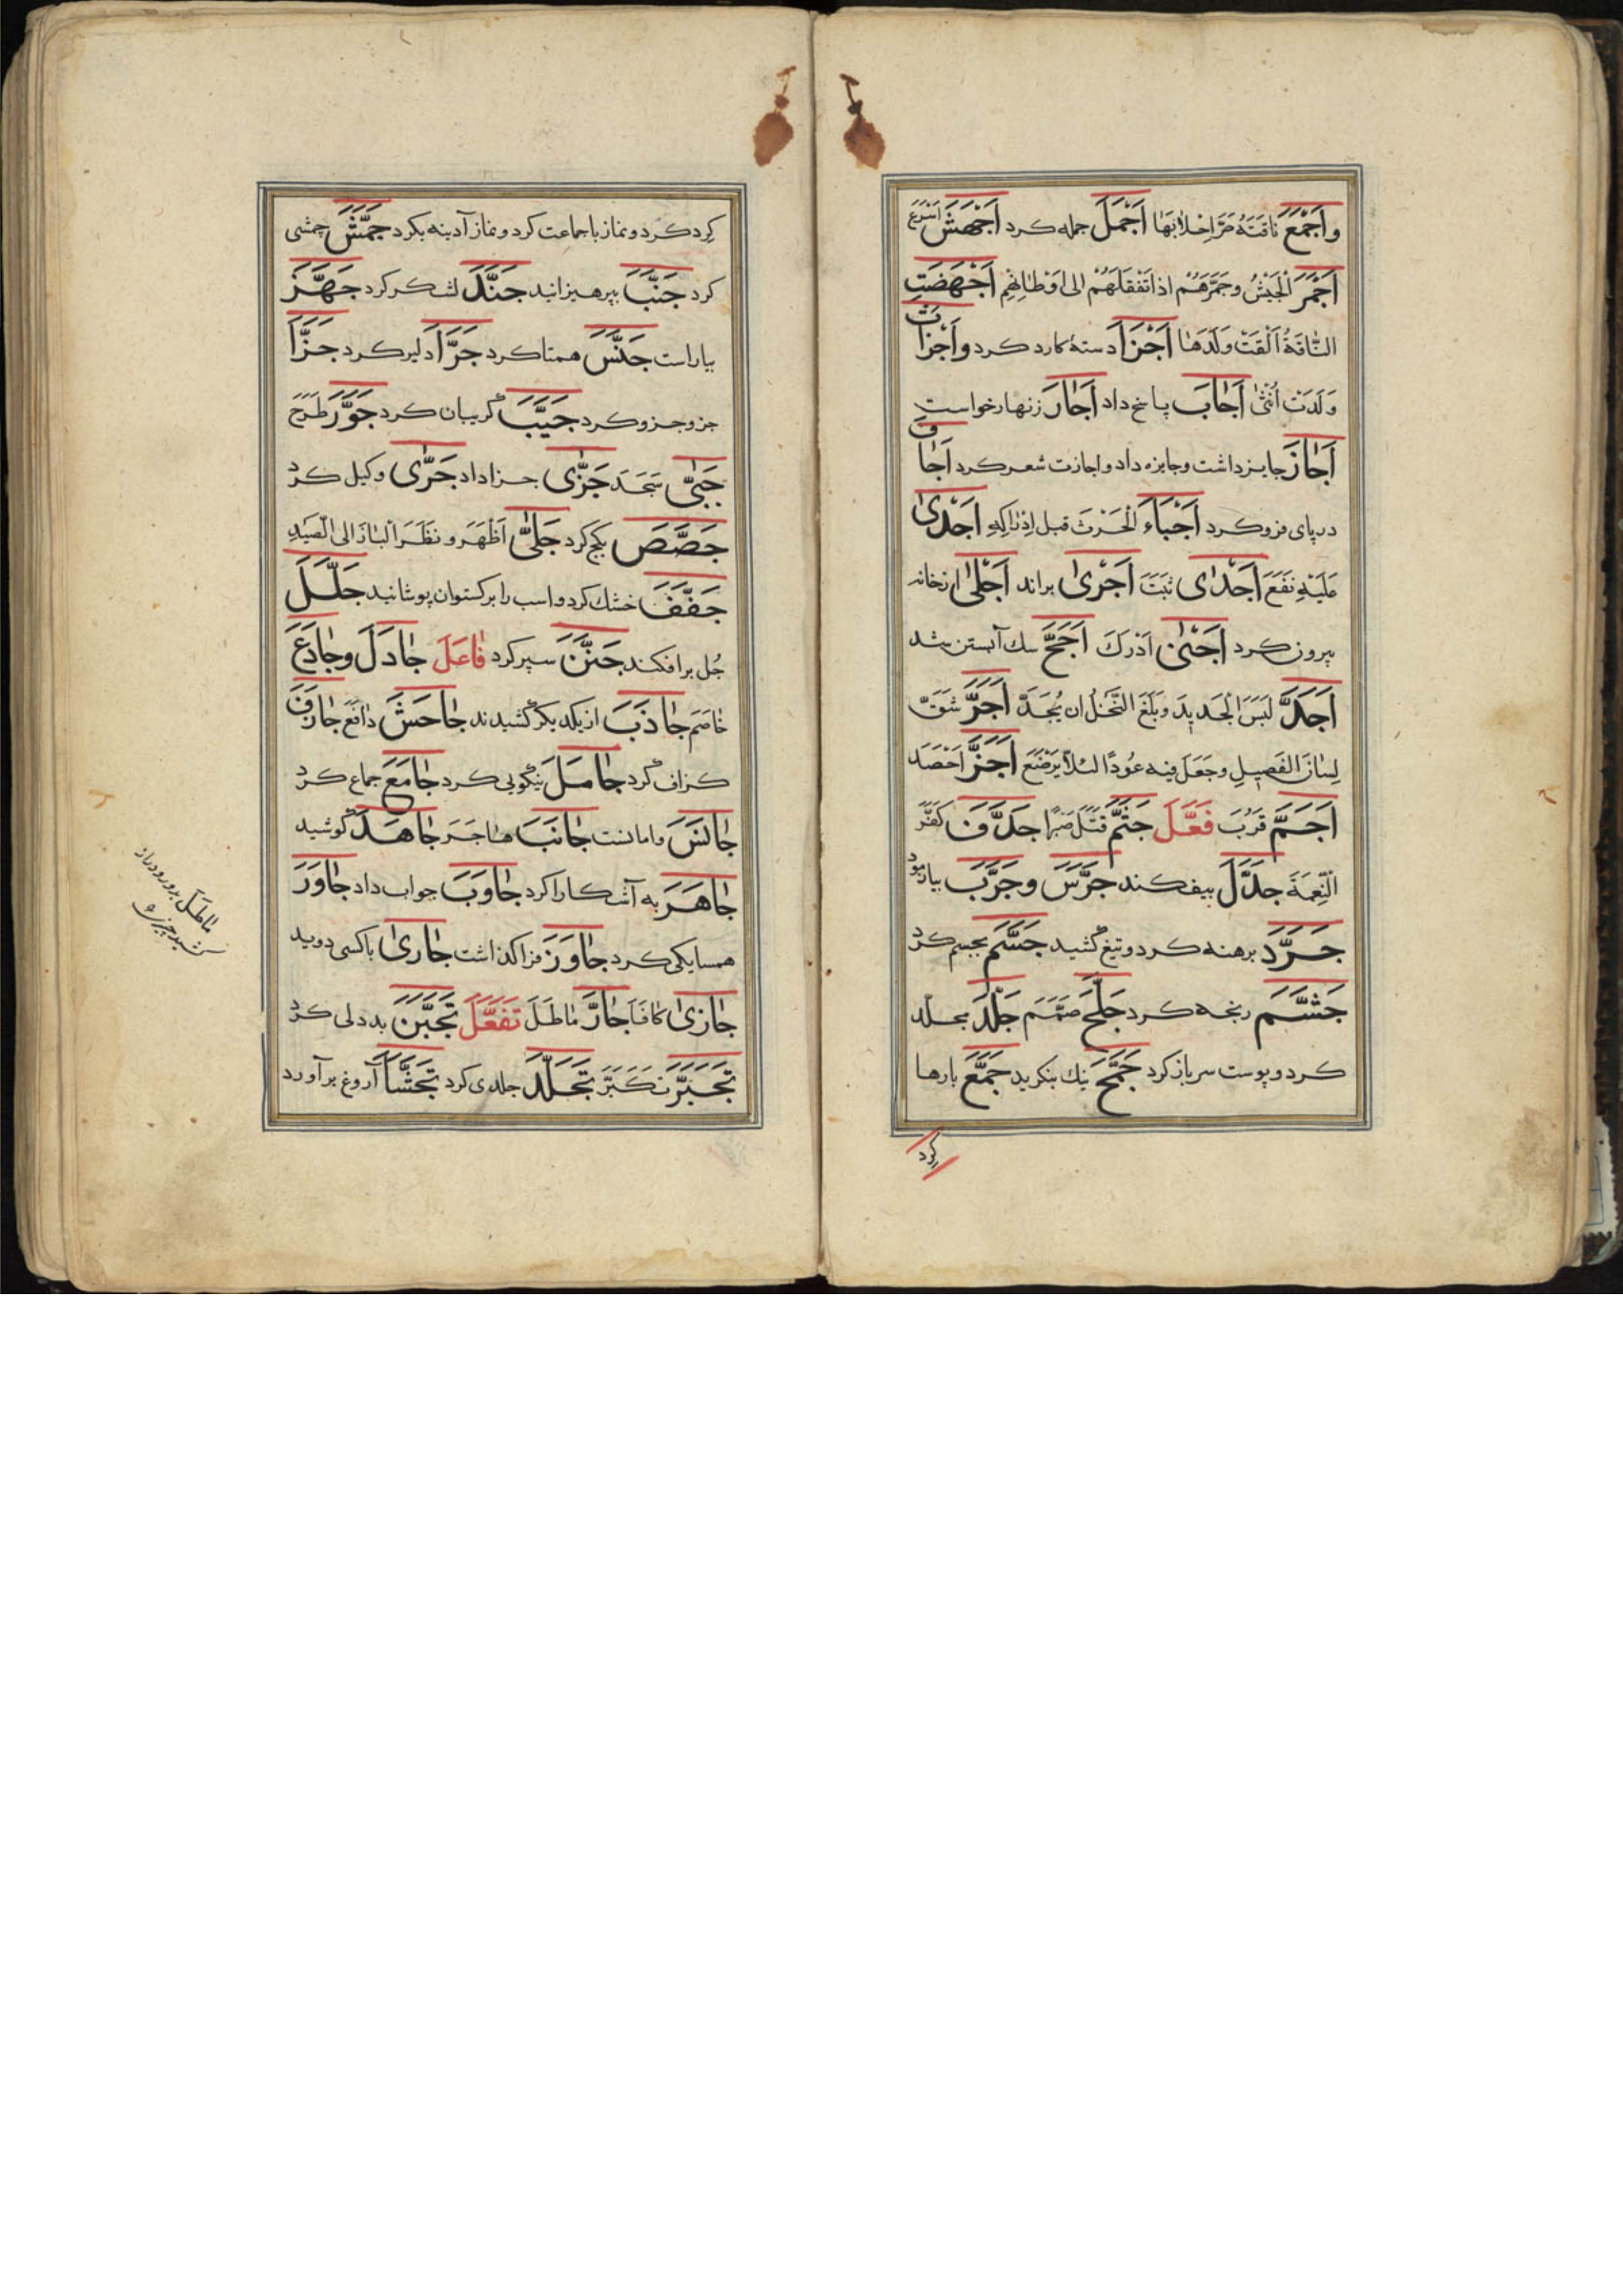 وَاَجْمَعَ نَاقَتَهُ صَرَّ اِخْلَابَهَا اَجْمَلَ جمله کرد اَجْهَشَ اَسْرَعَ
اَجْمَرَ الْجَيْشُ وجَمَّرَهُمْ اذا تَفَقَلَهُمْ الى اَوْطَانِهِمْ اَجْهَضَتِ
النَّاقَةُ اَلْقَتْ وَلَدَهَا اَجْزَأَ دستهٔ کارد کرد وَاَجْزَأَتْ
وَلَدَتْ اُنْثٰى اَجَابَ پاسخ داد اَجَارَ زنهار خواست
اَجَازَ جایز داشت وجایزه داد واجازت شعر کرد اَجَافَ
در پای فزو کرد اَجْبَاءَ الْحَرْثَ قبل اِدْرَاكِهِ اَجْدٰى
عَلَيْهِ نَفَعَ اَجْذٰاى ثَبَتَ اَجْرٰى براند اَجْلٰى ازخانه
بیرون کرد اَجْنٰى اَدْرَكَ اَجَحَّ سك آبستن شد
اَجَدَّ لَبِسَ الْجَدِيدَ وَبَلَغَ النَّخْلُ ان يُجَدَّ اَجَرَّ شَقَّ
لِسَانَ الفَصِيلِ وجَعَلَ فيه عُودًا لئلا يَرْضَعَ اَجَزَّ اَحْصَدَ
اَجَمَّ قَرُبَ فَعَّلَ جَثَّمَ قَتَلَ صَبْرًا جَدَّفَ كَفَّرَ
النِّعْمَةَ جَدَّلَ بیفکند جَرَّسَ وجَرَّبَ بیازمود
جَرَّدَ برهنه کرد وتیغ کشید جَسَّمَ بجسم کرد
جَشَّمَ رنجه کرد جَلَّحَ صَمَّمَ جَلَّدَ مجلّد
کرد وپوست سر باز کرد جَمَّحَ نيك بنکرید جَمَّعَ بارها
کِرد
کِرد کرد ونماز با جماعت کرد ونماز آدینه بکرد جَمَّشَ چمشی
کرد جَنَّبَ بپرهیزانید جَنَّدَ لشکر کرد جَهَّزَ
بیاراست جَنَّسَ همتا کرد جَرَّأَ دلیر کرد جَزَّأَ
جزو جزو کرد جَيَّبَ گریبان کرد جَوَّرَ طَرَحَ
جَبّٰى سَجَدَ جَزّٰى جزا داد جَرّٰى وکیل کرد
جَصَّصَ بکج کرد جَلّٰى اَظْهَرَ ونَظَرَ الْبَازُ الى الصَّيْدِ
جَفَّفَ خشك کرد واسب را برکستوان پوشانید جَلَّلَ
جُل برافکند جَنَّنَ سپر کرد فَاعَلَ جَادَلَ وجَادَعَ
خَاصَمَ جَاذَبَ از یکدیکر کشیدند جَاحَشَ دَافَعَ جَازَفَ
کزاف کرد جَامَلَ نیکویی کرد جَامَعَ جماع کرد
جَانَسَ وامانست جَانَبَ هاجَرَ جَاهَدَ کوشید
جَاهَرَ به آشکارا کرد جَاوَبَ جواب داد جَاوَرَ
همسایکی کرد جَاوَزَ فزا کذاشت جَارٰى باکسی دوید
جَازٰى كَافَا جَارَّ مَاطَلَ تَفَعَّلَ تَجَبَّنَ بددلی کرد
تَجَبَّرَ تَكَبَّرَ تَجَلَّدَ جلدی کرد تَجَشَّأَ آروغ برآورد
ماطل